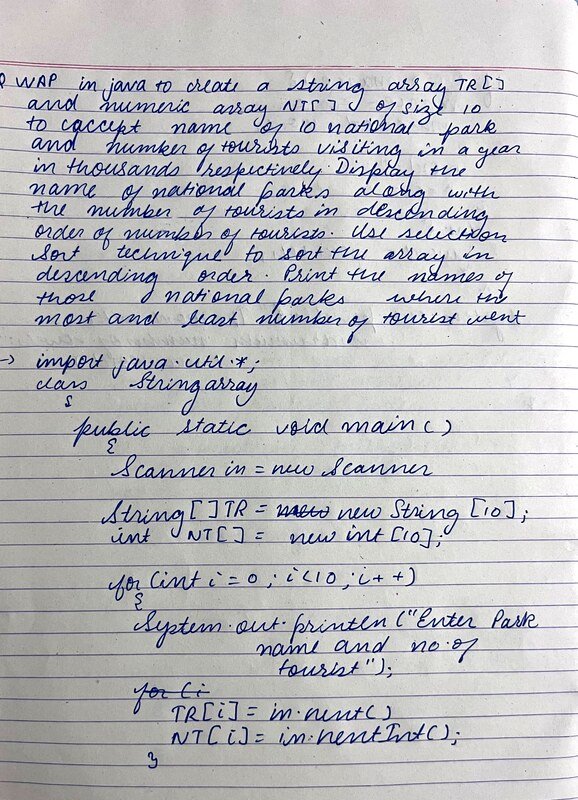 Q WAP in java to create a string array TR[]
and numeric array NT[] of size 10
to caccept name of 10 national park
and number of tourists visiting in a year
in thousands respectively. Display the
name of national parks along with
the number of tourists in descending
order of number of tourists. Use selection
Sort technique to sort the array in
descending order. Print the names of
those national parks where the
most and least number of tourist went
→ import java.util.*;
class Stringarray
{
public static void main()
{
Scanner in = new Scanner
String[]TR = new String [10];
int NT[] = new int [10];
for (int i = 0; i<10; i++)
{
System.out.println ("Enter Park
name and no. of
tourist");
for (i
TR[i] = in.next()
NT[i] = in.nextInt();
}